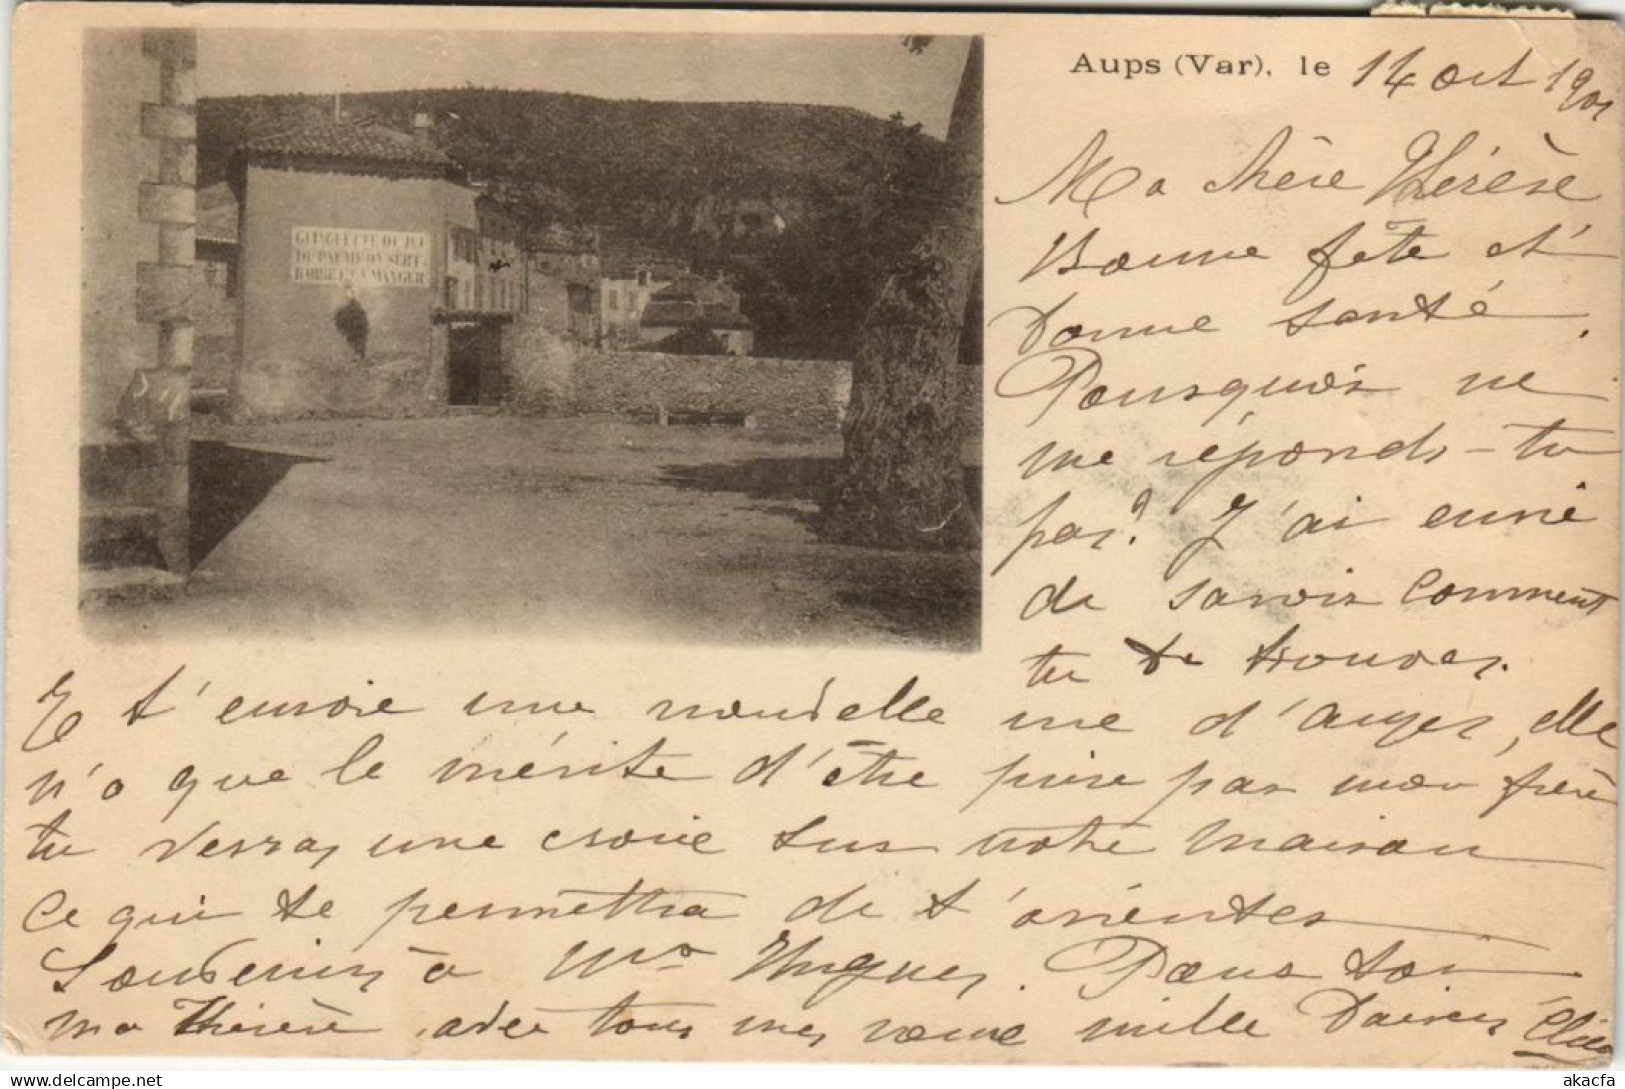 Aups (Var), le 14 oct 1901
GUINGUETTE DU JEU
DE PAUME ON SERT
A BOIRE ET A MANGER
Ma chère Thérèse
Bonne fête et
bonne santé.
Pourquoi ne
me réponds-tu
pas? J'ai envie
de savoir comment
tu te trouves.
Je t'envoie une nouvelle vue d'Aups, elle
n'a que le mérite d'être prise par mon frère
tu verras une croix sur notre maison
ce qui te permettra de t'orienter
Souvenirs à Mme Hugues. Pour toi
ma Thérèse avec tous mes vœux mille baisers
delcampe.net
akacfa